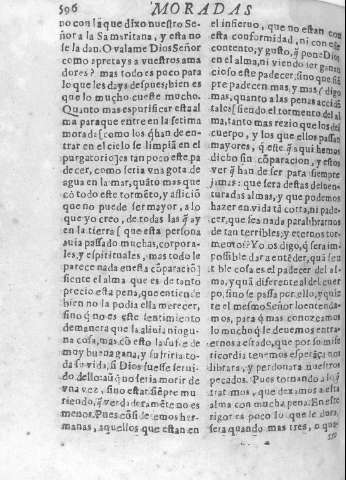 596 MORADAS
no con la que dixo nuestro Se-
ñor a la Samaritana, y esta no
se la dan. O valame Dios Señor
como apretays a vuestros ama
dores? mas todo es poco para
lo que les days despues; bien es
que lo mucho cueste mucho.
Quanto mas es purificar esta al
ma para que entre en la setima
morada [como los q̃ han de en-
trar en el cielo se limpiã en el
purgatorio] es tan poco este pa
decer, como seria vna gota de
agua en la mar, quãto mas que
cõ todo este tormẽto, y aflicciõ
que no puede ser mayor, a lo
que yo creo, de todas las q̃ ay
en la tierra [ que esta persona
auia passado muchas, corpora-
les, y espirituales, mas todo le
parece nada en esta cõparaciõ]
siente el alma que es de tanto
precio esta pena, que entiende
bien no la podia ella merecer,
sino q̃ no es este sentimiento
de manera que la aliuia ningu-
na cosa, mas cõ esto la sufre de
muy buena gana, y sufriria to-
da su vida, si Dios fuesse serui-
do dello: auq̃ no seria morir de
vna vez, sino estar siẽpre mu-
riendo, q̃ verdaderamẽte no es
menor. Pues cõsideremos her-
manas, aquellos que estan en
el infierno, que no estan con
esta conformidad, ni con este
contento, y gusto, q̃ pone Dios
en el alma, ni viendo ser ganan
cioso este padecer, sino que siẽ
pre padecen mas, y mas [ digo
mas, quanto a las penas accidẽ
tales] siendo el tormento del al
ma, tanto mas rezio que los del
cuerpo, y los que ellos passan
mayores, q̃ este q̃ aqui hemos
dicho sin cõparacion, y estos
ver q̃ han de ser para siempre
jamas: que sera destas desuen-
turadas almas, y que podemos
hazer en vida tã corta, ni pade-
cer, que sea nada para librarnos
de tan terribles, y eternos tor-
mentos? Yo os digo, q̃ sera im-
possible dar a entẽder, quã sen
tible cosa es el padecer del al-
ma, y quã diferente al del cuer
po, sino se passa por ello, y quie
re el mesmo Señor lo entenda-
mos, para q̃ mas conozcamos
lo mucho q̃ le deuemos en tra-
ernos a estado, que por su mise
ricordia tenemos esperãça nos
librara, y perdonara nuestros
pecados. Pues tornando a lo q̃
tratamos, que dexamos a esta
alma con mucha pena. En este
rigor es poco lo que le dura,
sera quando mas tres, o qua-